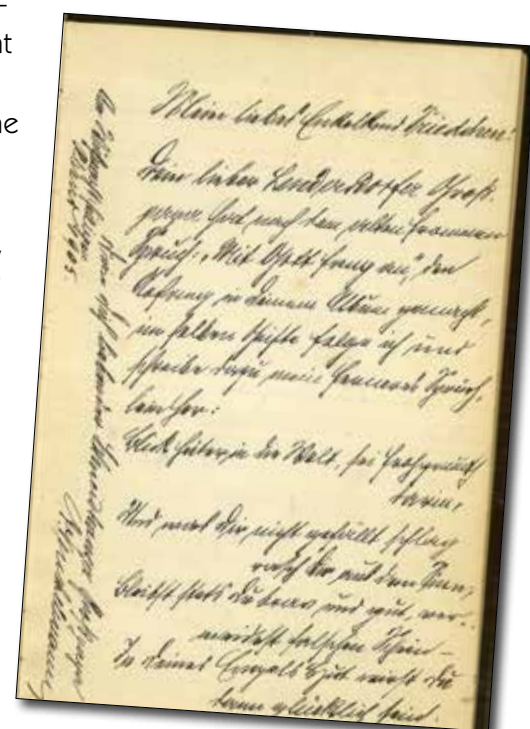 nt
ne
Mein liebes Enkelkind Friedchen!
Dein lieber Lendersdorfer Groß-
papa hat nach dem alten frommen
Spruch: „Mit Gott fang an", den
Anfang in deinem Album gemacht,
im selben Geiste folge ich und
schreibe dazu mein ferneres Sprüch-
lein her:
Blick heiter in die Welt, sei frohgemuth
darin,
Und was dir nicht gefällt schlag
rasch dir aus dem Sinn,
Bleibst stets du brav und gut, ver-
meidest falschen Schein –
In deines Engels Hut wirst du
dann glücklich sein.
1905.